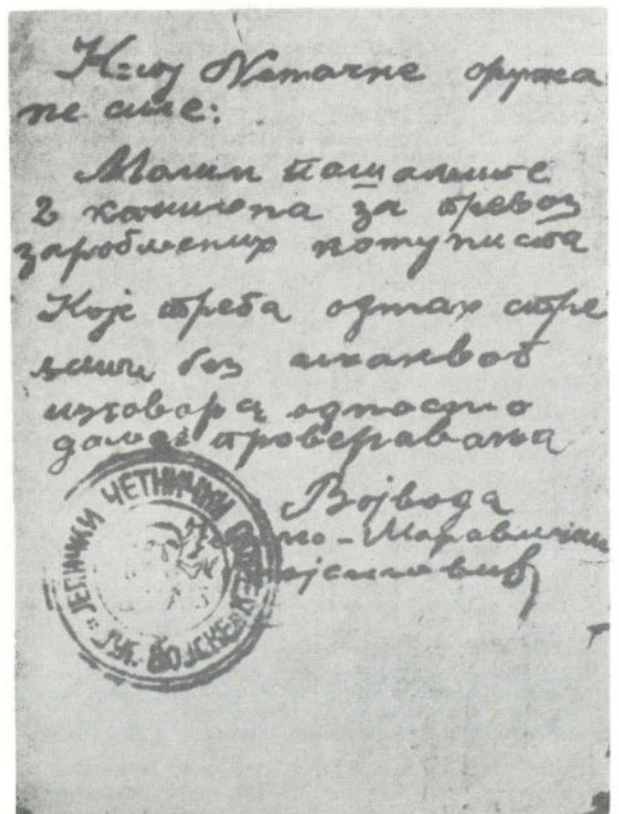 Немачке оружа
не силе:
Молим пошаљите
2 камиона за превоз
заробљених комуниста
Које треба одмах стре
без икаквог
изговора односно
даљег проверавања
Војвода
ЈЕЛИЧКИ ЧЕТНИЧКИ ОДРЕД
ЈУГ. ВОЈСКЕ